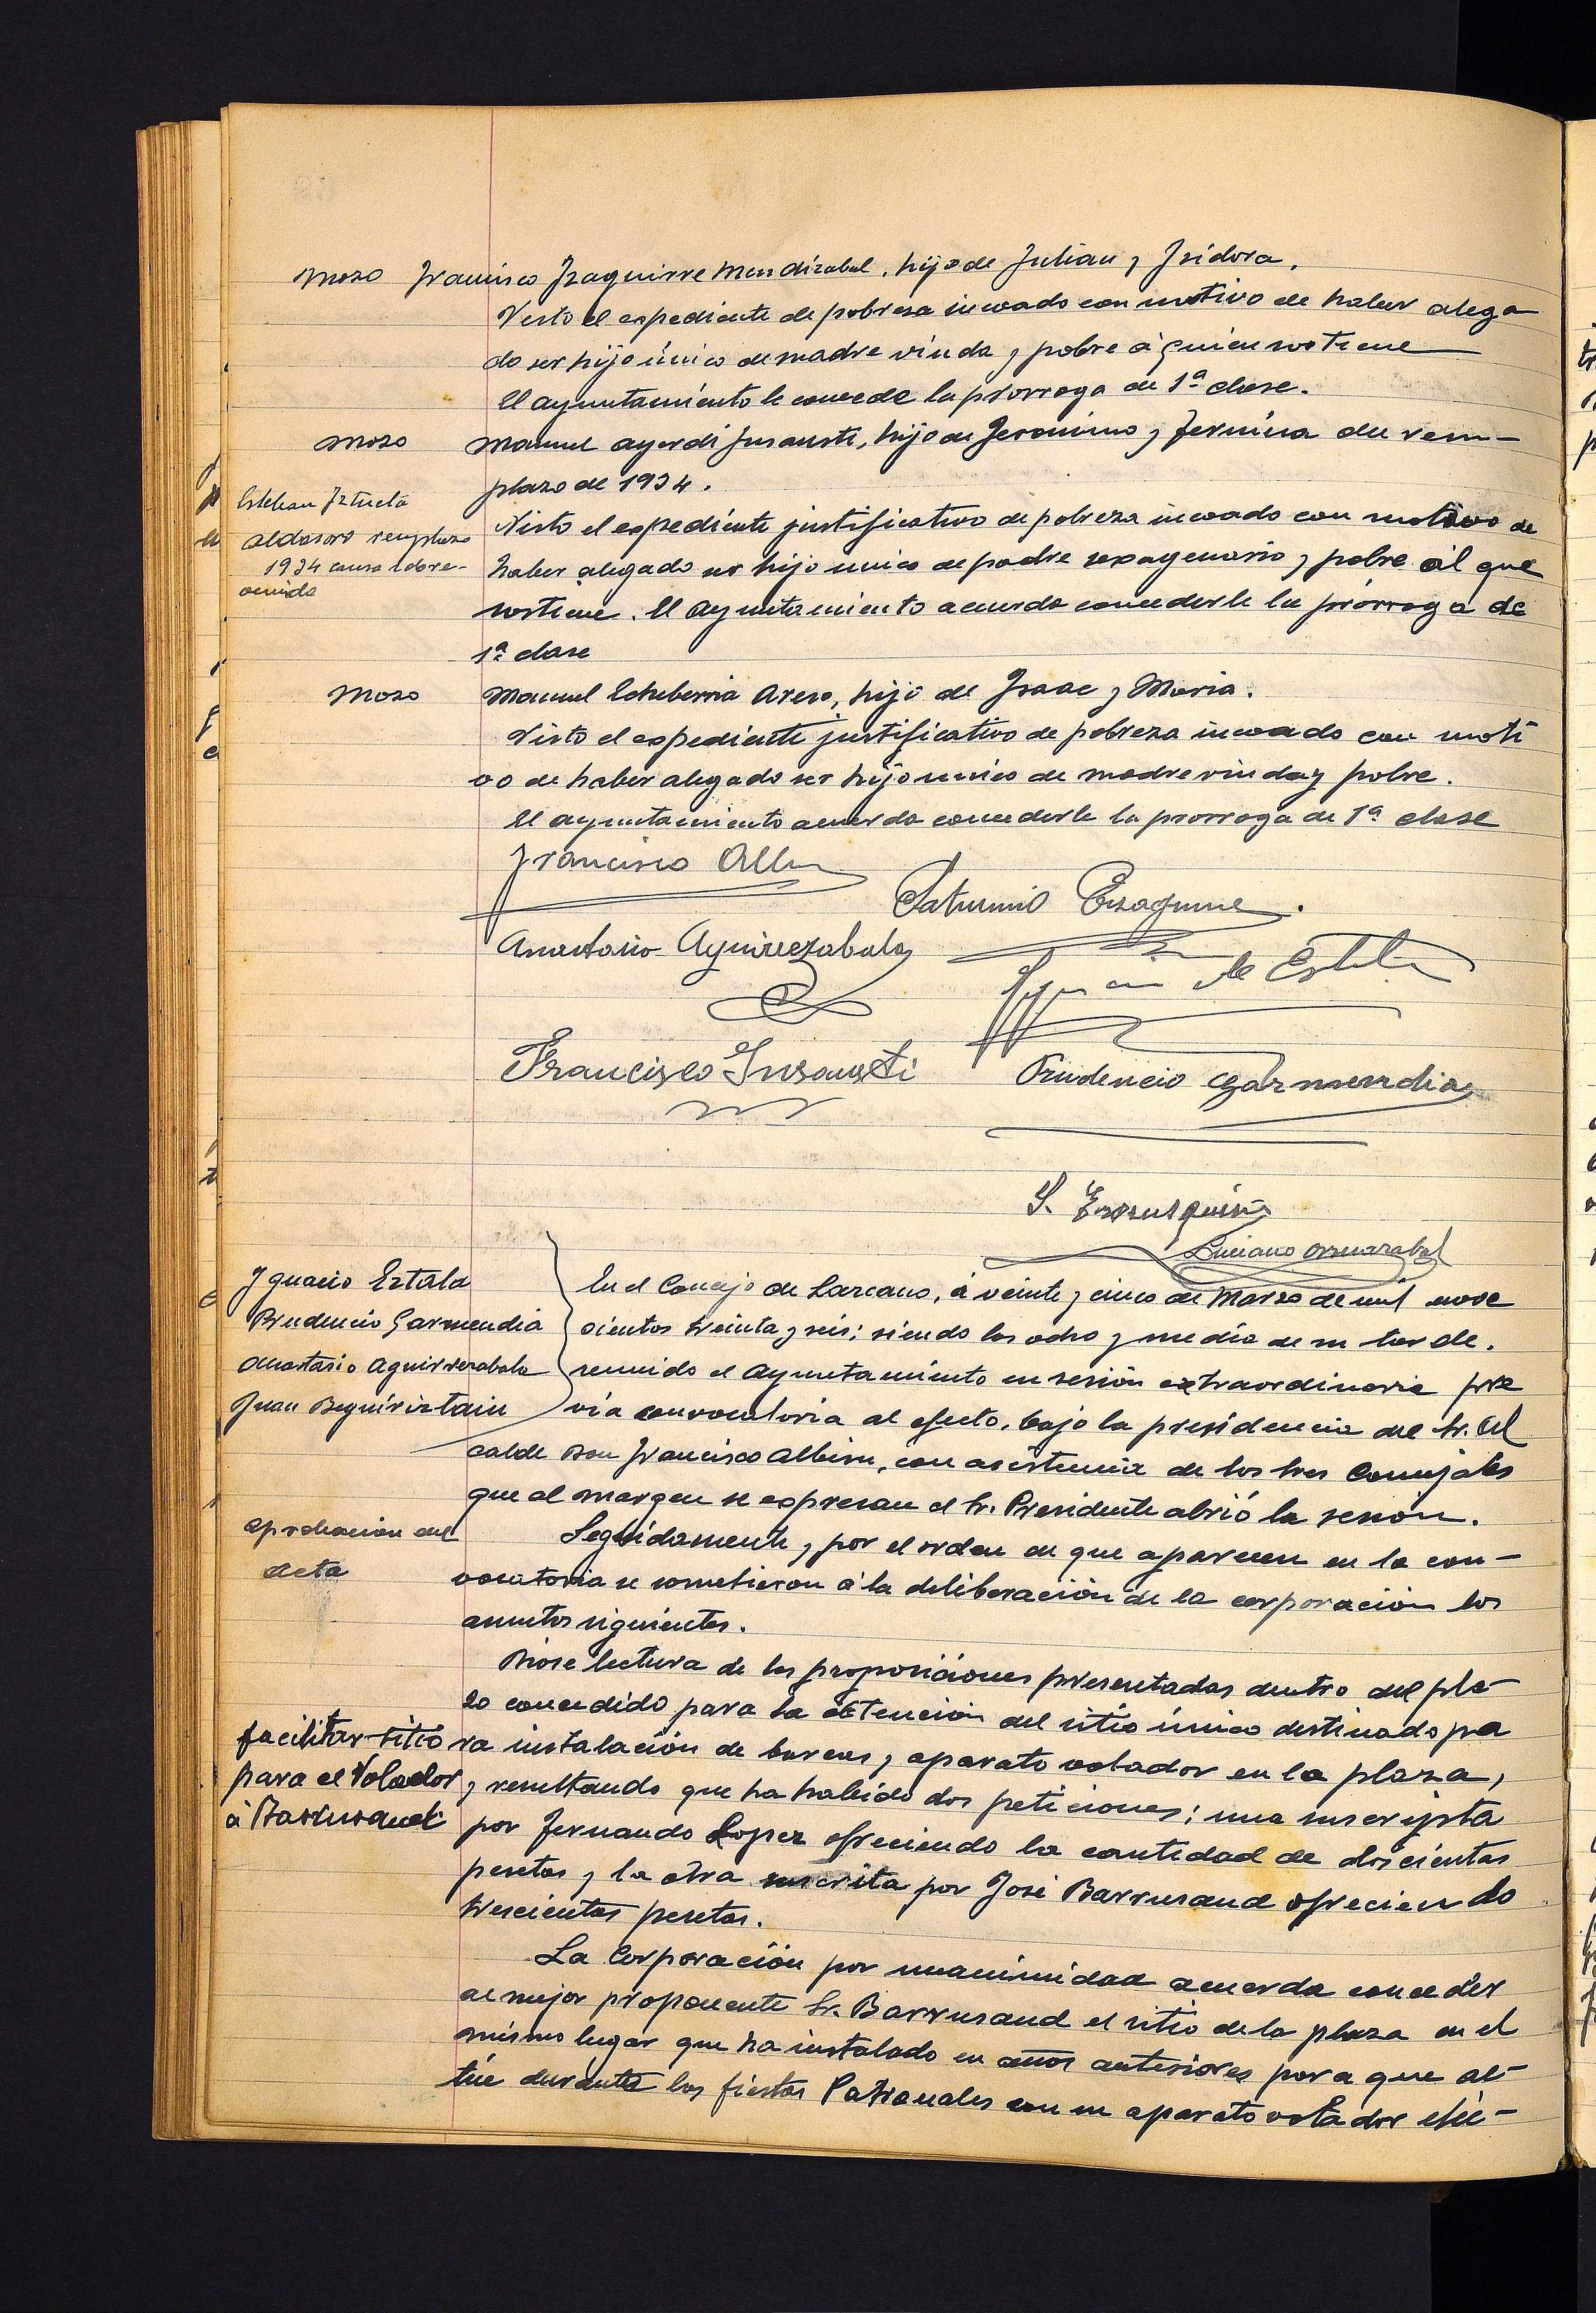 Mozo Francisco Izaguirre Mendizabal, hijo de Julian y Isidora.
Visto el expediente de pobreza incoado con motivo de haber alega
do ser hijo único de madre viuda y pobre á quien sostiene
El ayuntamiento le concede la prorroga de 1ª clase.
Mozo Manuel ayerdi Insausti, hijo de Jeronimo y Fermina del reem-
plazo de 1934.
Esteban Iztueta
aldasoro remplazo
1934 causa
Visto el expediente justificativo de pobreza incoado con motivo de
haber alegado ser hijo unico de padre sexagenario y pobre al que
sostiene. El Ayuntamiento acuerda concederle la prórroga de
1ª clase
Mozo Manuel Echeberria Areso, hijo de Isaac y Maria.
Visto el expediente justificativo de pobreza incoado con moti
vo de haber alegado ser hijo unico de madre viuda y pobre.
El ayuntamiento acuerda concederle la prorroga de 1ª clase
Francisco
Saturnino Izaguirre.
Anastasio Aguirrezabala
Francisco Insausti
Prudencio Garmendia
Luciano
Ygnacio Estala
Prudencio Garmendia
Anastasio Aguirrezabala
Juan Beguiristain
En el Concejo de Lazcano, á veinte y cinco de Marzo de mil nove
cientos treinta y seis; siendo las ocho y media de su tarde.
reunido el Ayuntamiento en sesión extraordinaria pre
via convocatoria al efecto, bajo la presidencia del Sr. Al
calde Don Francisco Albisu, con asistencia de los tres Concejales
que al margen se expresan el Sr. Presidente abrió la sesion.
aprobacion del
acta
Seguidamente y por el orden en que aparecen en la con-
vocatoria se sometieron á la deliberación de la corporación los
asuntos siguientes.
Diose lectura de las proposiciones presentadas dentro del pla-
zo concedido para la obtención del sitio único destinado pa
facilitar sitio
para el Volador
á Barrusaud
ra instalación de barcas y aparato volador en la plaza,
y resultando que ha habido dos peticiones; una suscripta
por Fernando Lopez ofreciendo la cantidad de doscientas
pesetas y la otra suscrita por José Barrusaud ofreciendo
trescientas pesetas.
La Corporación por unanimidad acuerda conceder
al mejor proponente Sr. Barrusaud el sitio de la plaza en el
mismo lugar que ha instalado en años anteriores para que ac-
túe durante las fiestas Patronales con su aparato volador eléc-